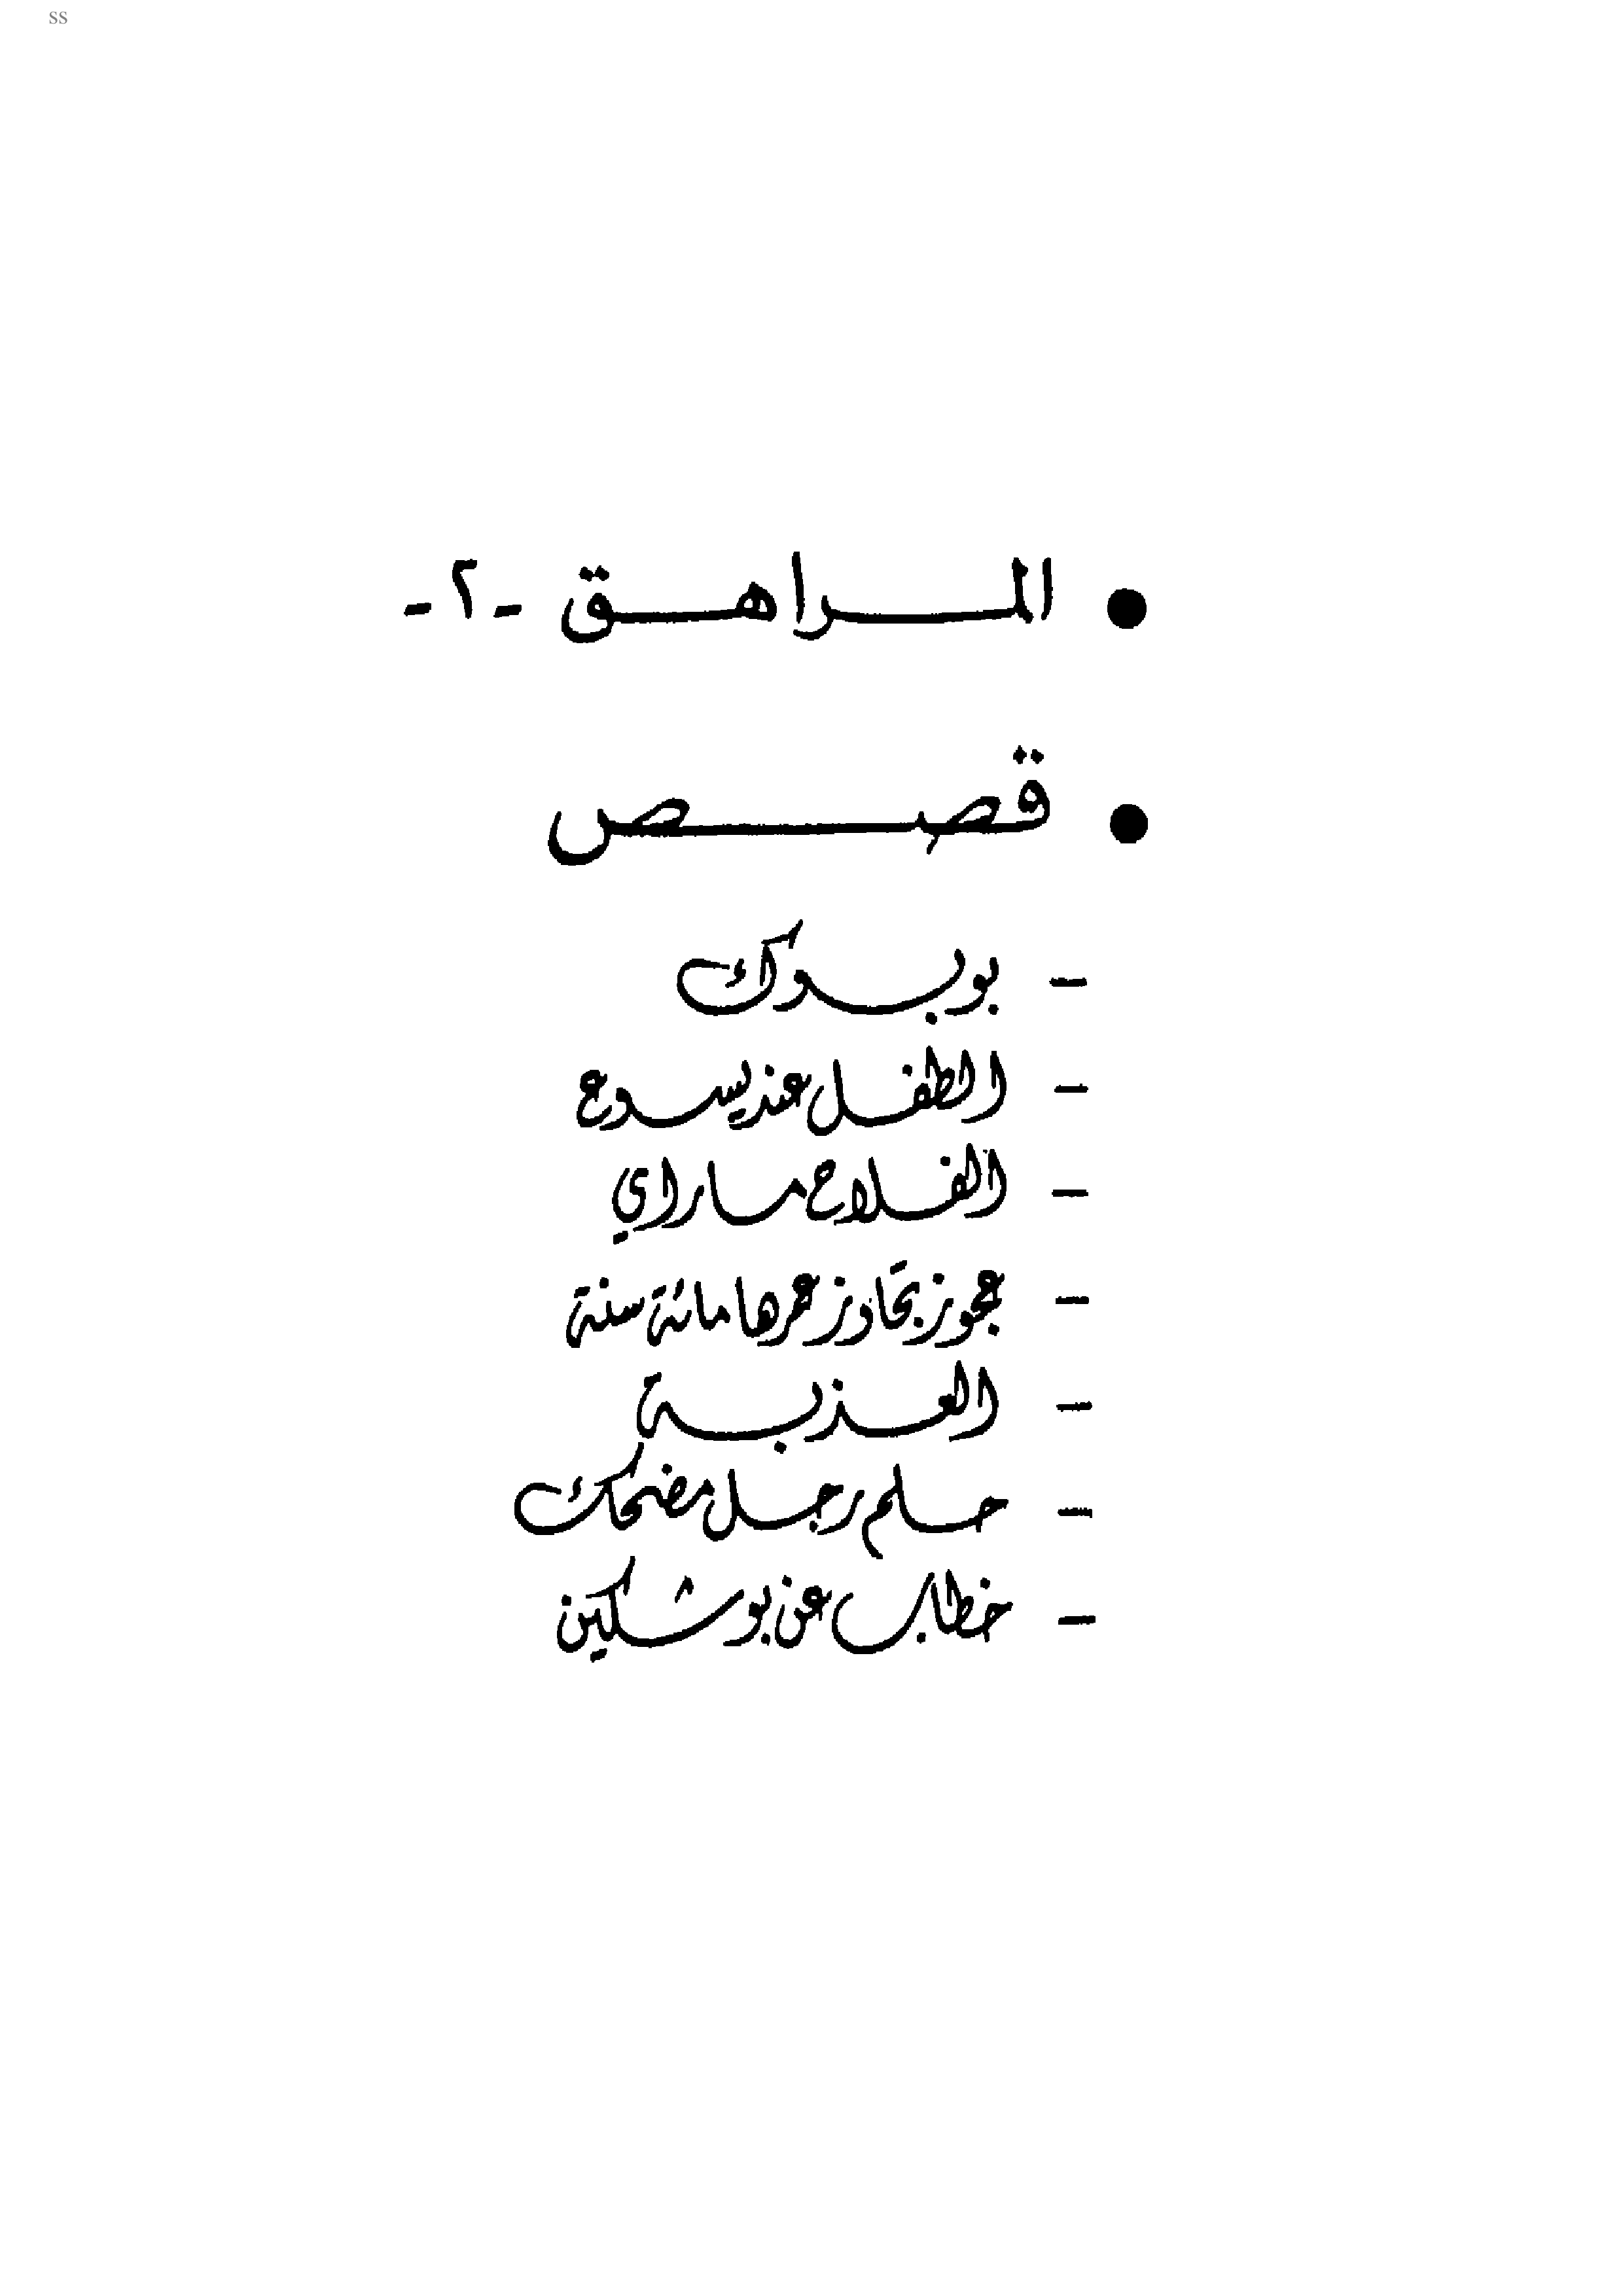 ss
● المراهق -٢-
● قصص
- بوبوك
- الطفل عند يسوع
- الفلاح ماراي
- عجوز تجاوز عمرها مائة سنة
- العذبة
- حلم رجل مضحك
- خطاب عن بوشكين